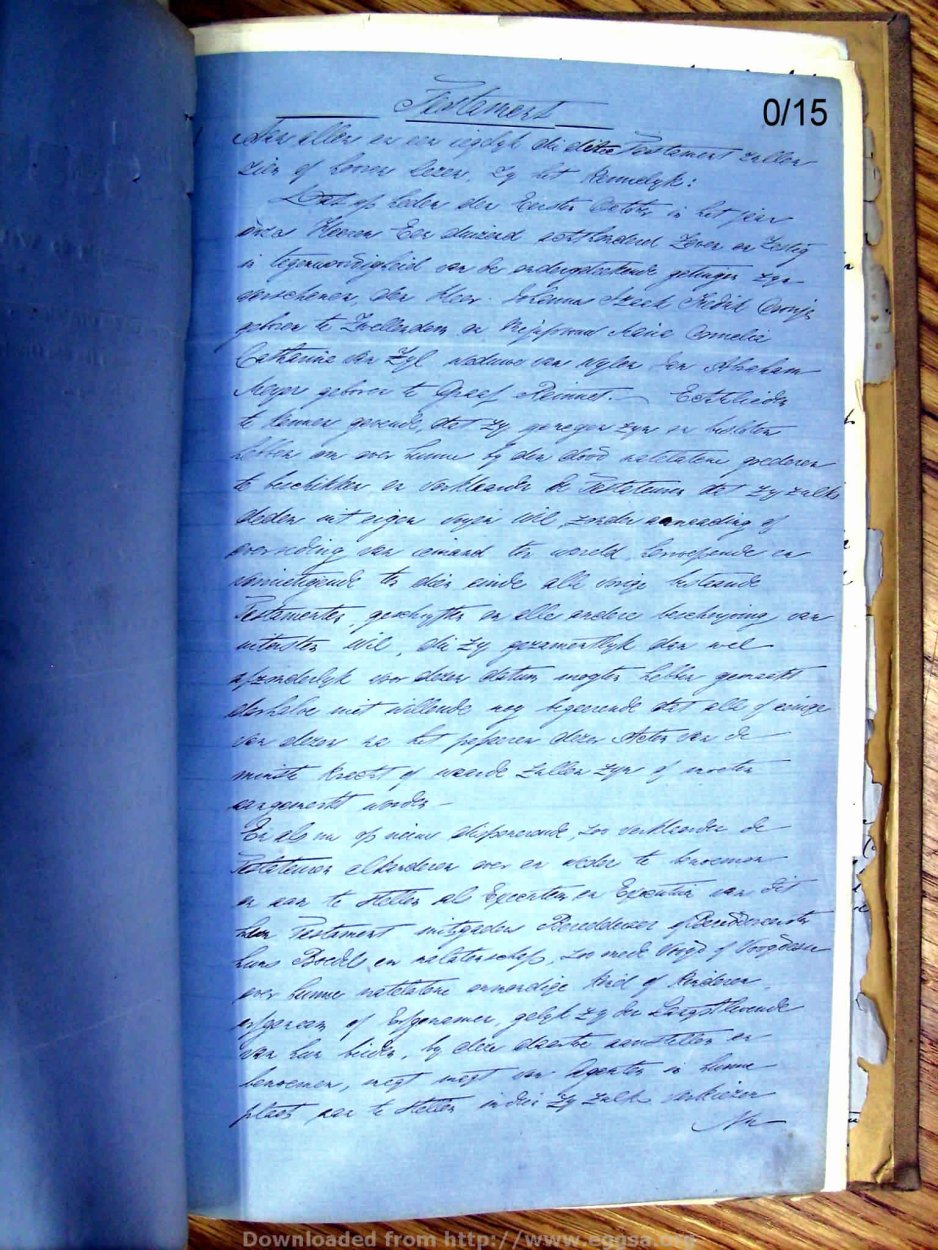 Testament
0/15
Aan allen en een iegelyk die deze Testament zullen
zien of hooren lezen, Zy het kennelyk:
Dat op heden den Eersten October in het jaar
onzes Heeren Een duizend acht honderd Zeven en Zestig
in tegenwoordigheid van de ondergeteekende getuigen zyn
verschenen, den Heer Johannes Izaak
geboren te Zwellendam en Mejufvrouw Maria Cornelia
Catharina van Zyl weduwe van wylen den Abraham
Meyer geboren te Graaf Reinnet. Echtlieden
te kennen gevende, dat zy genegen zyn en besloten
hebben om over hunne by den dood natelatene goederen
te beschikken en verklaarde de Testateuren dat zy zulks
deden uit eigen vryen wil zonder aanrading of
overreding van iemand ter wereld, herroepende en
vernietigende ten dien einde alle vorige bestaande
Testamenten, geschriften en alle andere beschryving van
uitersten wil, die zy gezamentlyk dan wel
afzonderlyk voor dezen datum mogten hebben gemaakt
derhalve niet willende nog begeerende dat alle of eenige
van dezen na het passeren dezer Acten van de
minste kracht of waarde zullen zyn of moeten
aangemerkt worden —
En als nu op nieuw disponerende, zoo verklaarden de
Testateuren elkanderen over en weder te benoemen
en aan te stellen als Executeur en Executrice van dit
hun Testament mitsgaders Beredderaar of
huns Boedel en nalatenschap, zoo mede Voogd of Voogdesse
over hunne natelatene onmondige Kind of Kinderen,
erfgenaam of Erfgenamen, gelyk zy den Langstlevende
van hun beiden, by deze daartoe aanstellen en
benoemen, met magt om Agenten in hunne
plaats aan te stellen indien zy zulks verkiezen
Downloaded from http://www.eggsa.org